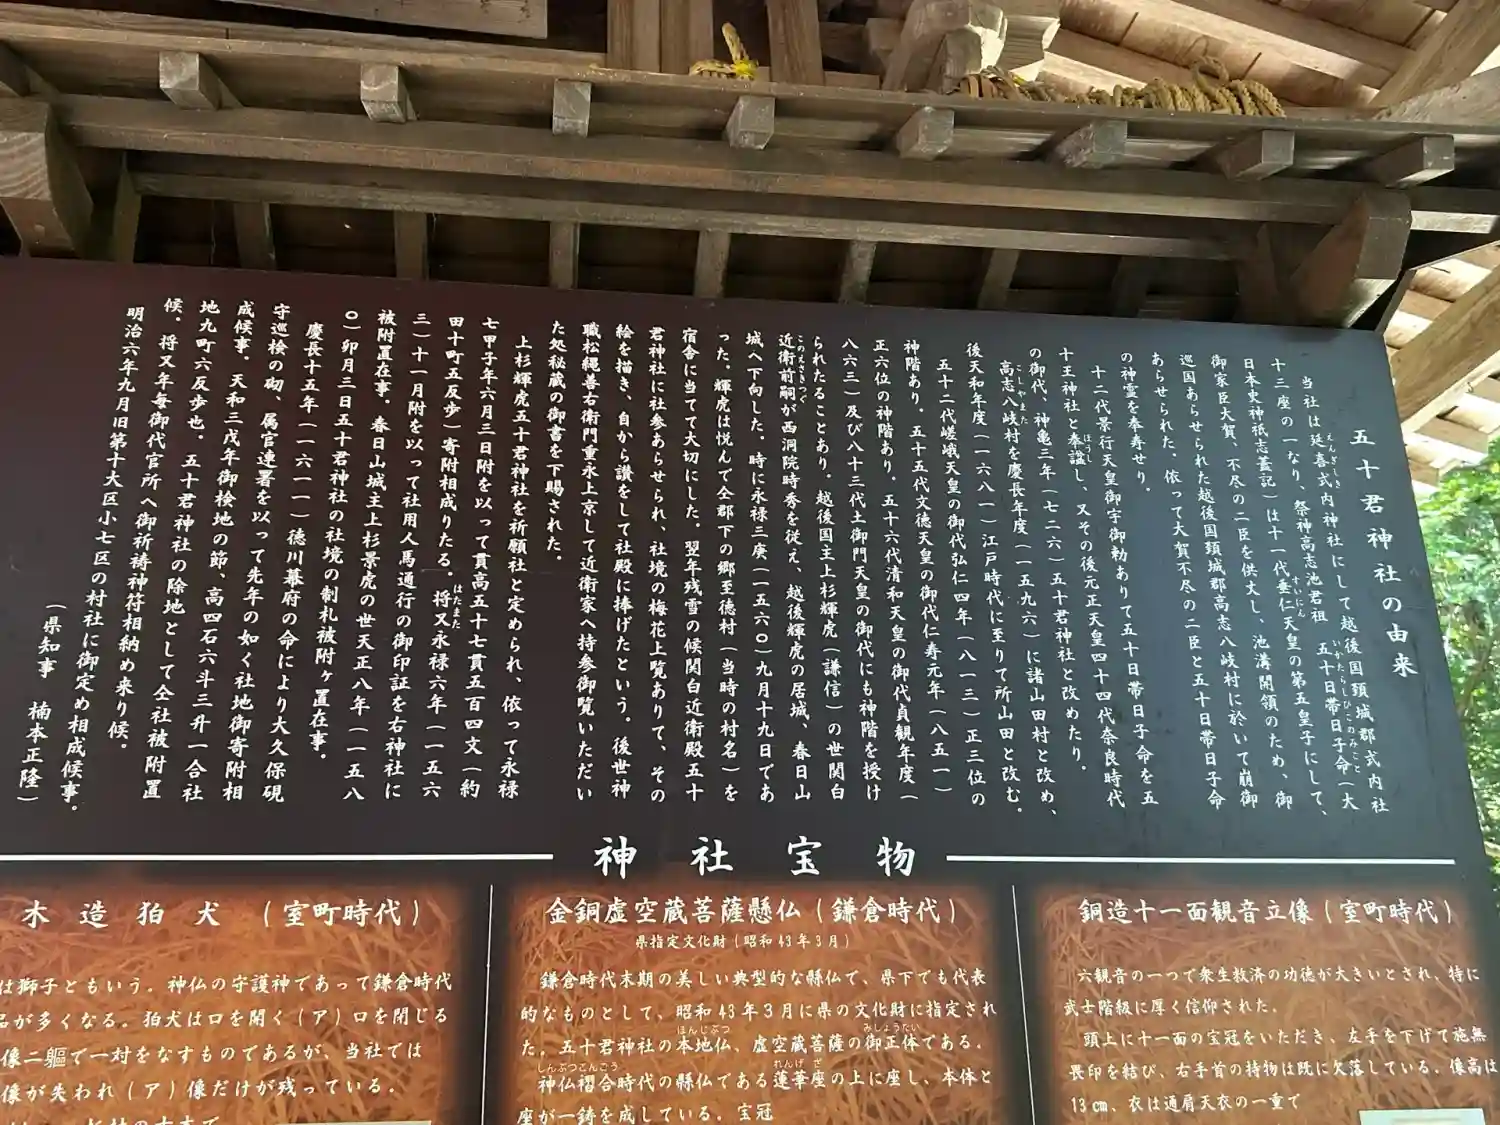 五十君神社の由来
当社は延喜式内神社にして越後国頚城郡式内社
十三座の一なり、祭神高志池君祖　五十日帯日子命（大
日本史神祇志蓋記）は十一代垂仁天皇の第五皇子にして、
御家臣大賀、不尽の二臣を供丈し、池溝開領のため、御
巡国あらせられた越後国頚城郡高志八岐村に於いて崩御
あらせられた。依って大賀不尽の二臣と五十日帯日子命
の神霊を奉寿せり。
十二代景行天皇御宇御勅ありて五十日帯日子命を五
十王神社と奉諡し、又その後元正天皇四十四代奈良時代
の御代、神亀三年（七二六）五十君神社と改めたり。
高志八岐村を慶長年度（一五九六）に諸山田村と改め、
後天和年度（一六八一）江戸時代に至りて所山田と改む。
五十二代嵯峨天皇の御代弘仁四年（八一三）正三位の
神階あり。五十五代文徳天皇の御代仁寿元年（八五一）
正六位の神階あり。五十六代清和天皇の御代貞観年度（
八六三）及び八十三代土御門天皇の御代にも神階を授け
られたることあり。越後国主上杉輝虎（謙信）の世関白
近衛前嗣が西洞院時秀を従え、越後輝虎の居城、春日山
城へ下向した。時に永禄三庚（一五六〇）九月十九日であ
った。輝虎は悦んで仝郡下の郷至徳村（当時の村名）を
宿舎に当てて大切にした。翌年残雪の候関白近衛殿五十
君神社に社参あらせられ、社境の梅花上覧ありて、その
絵を描き、自から讃をして社殿に捧げたという。後世神
職松縄善右衛門重永上京して近衛家へ持参御覧いただい
た処秘蔵の御書を下賜された。
上杉輝虎五十君神社を祈願社と定められ、依って永禄
七甲子年六月三日附を以って貫高五十七貫五百四文（約
田十町五反歩）寄附相成りたる。将又永禄六年（一五六
三）十一月附を以って社用人馬通行の御印証を右神社に
被附置在事。春日山城主上杉景虎の世天正八年（一五八
〇）卯月三日五十君神社の社境の制札被附ヶ置在事。
慶長十五年（一六一一）徳川幕府の命により大久保硯
守巡検の砌、属官連署を以って先年の如く社地御寄附相
成候事。天和三戊年御検地の節、高四石六斗三升一合社
地九町六反歩也。五十君神社の除地として仝社被附置
候。将又年毎御代官所へ御祈祷神符相納め来り候。
明治六年九月旧第十大区小七区の村社に御定め相成候事。
（県知事　楠本正隆）
神社宝物
銅造十一面観音立像（室町時代）
六観音の一つで衆生救済の功徳が大きいとされ、特に
武士階級に厚く信仰された。
頭上に十一面の宝冠をいただき、左手を下げて施無
畏印を結び、右手首の持物は既に欠落している。像高は
13㎝、衣は通肩天衣の一重で
金銅虚空蔵菩薩懸仏（鎌倉時代）
県指定文化財（昭和43年3月）
鎌倉時代末期の美しい典型的な縣仏で、県下でも代表
的なものとして、昭和43年3月に県の文化財に指定され
た。五十君神社の本地仏、虚空蔵菩薩の御正体である。
神仏褶合時代の縣仏である蓮華座の上に座し、本体と
座が一鋳を成している。宝冠
木造狛犬（室町時代）
は獅子ともいう。神仏の守護神であって鎌倉時代
が多くなる。狛犬は口を開く（ア）口を閉じる
像二軀で一対をなすものであるが、当社では
像が失われ（ア）像だけが残っている。